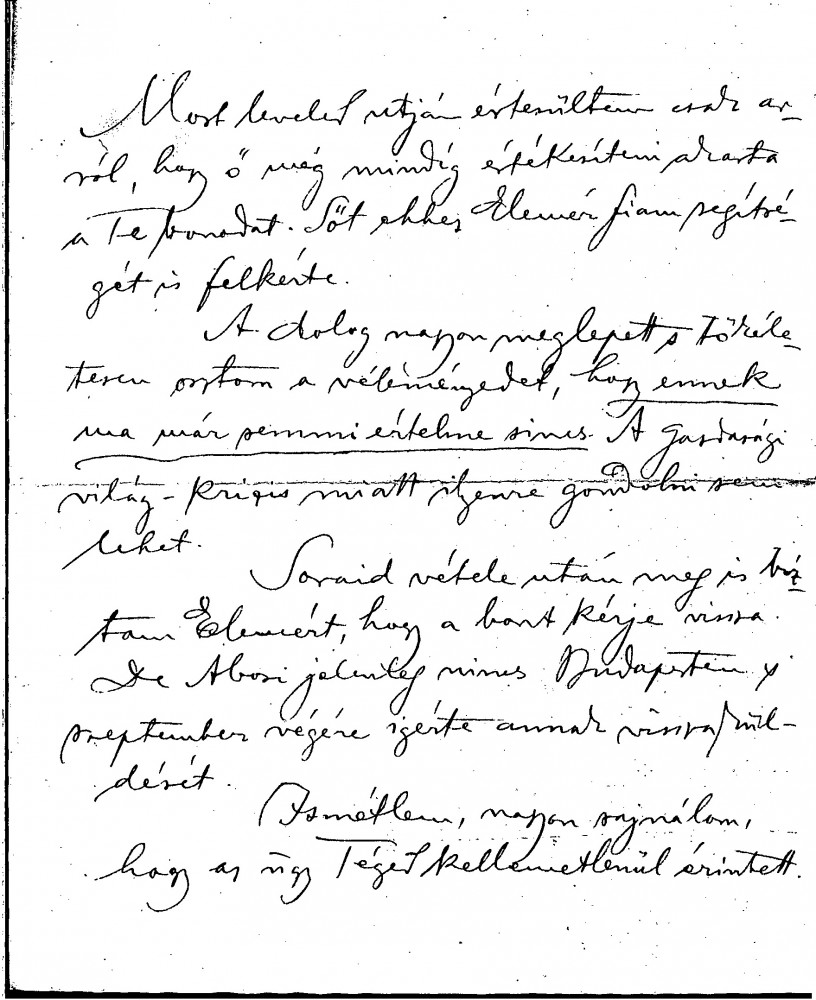 Most leveled utján értesültem csak ar-
ról, hogy ő még mindig értékesíteni akarta
a Te bonodat. Sőt ehhez Elemér fiam segítsé-
gét is felkérte.
A dolog nagyon meglepett s tökéle-
tesen osztom a véleményedet, hogy ennek
ma már semmi értelme sincs. A gazdasági
világ-krizis miatt ilyenre gondolni sem
lehet.
Soraid vétele után meg is bíz-
tam Elemért, hogy a bont kérje vissza.
De Abosi jelenleg nincs Budapesten s
szeptember végére igérte annak visszakül-
dését.
Ismétlem, nagyon sajnálom,
hogy az ügy Téged kellemetlenül érintett.